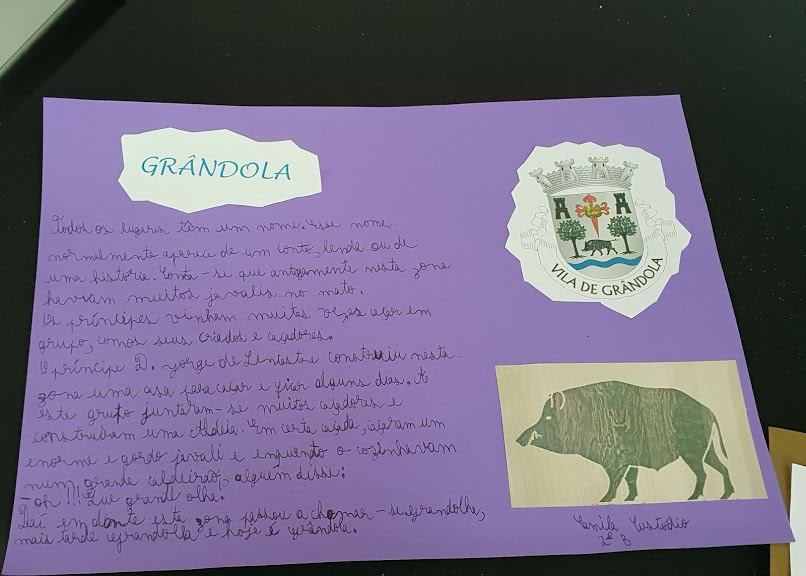 GRÂNDOLA
Todos os lugares têm um nome. Esse nome
normalmente aparece de um conto, lenda ou de
uma história. Conta-se que antigamente nesta zona
haviam muitos javalis no mato.
Os príncipes vinham muitas vezes caçar em
grupo, comos seus criados e caçadores.
O príncipe D. Jorge de Lencastre construiu nesta
zona uma casa para caçar e ficar alguns dias. A
este grupo juntaram-se muitos caçadores e
construiram uma Aldeia. Em certa caçada, caçaram um
enorme e gordo javali e enquanto o cozinhavam
num grande caldeirão, alguém disse:
-oh!!! Que grande olha.
Daí em dante esta zona passou a chamar-se Grandolha,
mais tarde Grandolla e hoje é Grândola.
VILA DE GRÂNDOLA
Camila Custodio
2º B